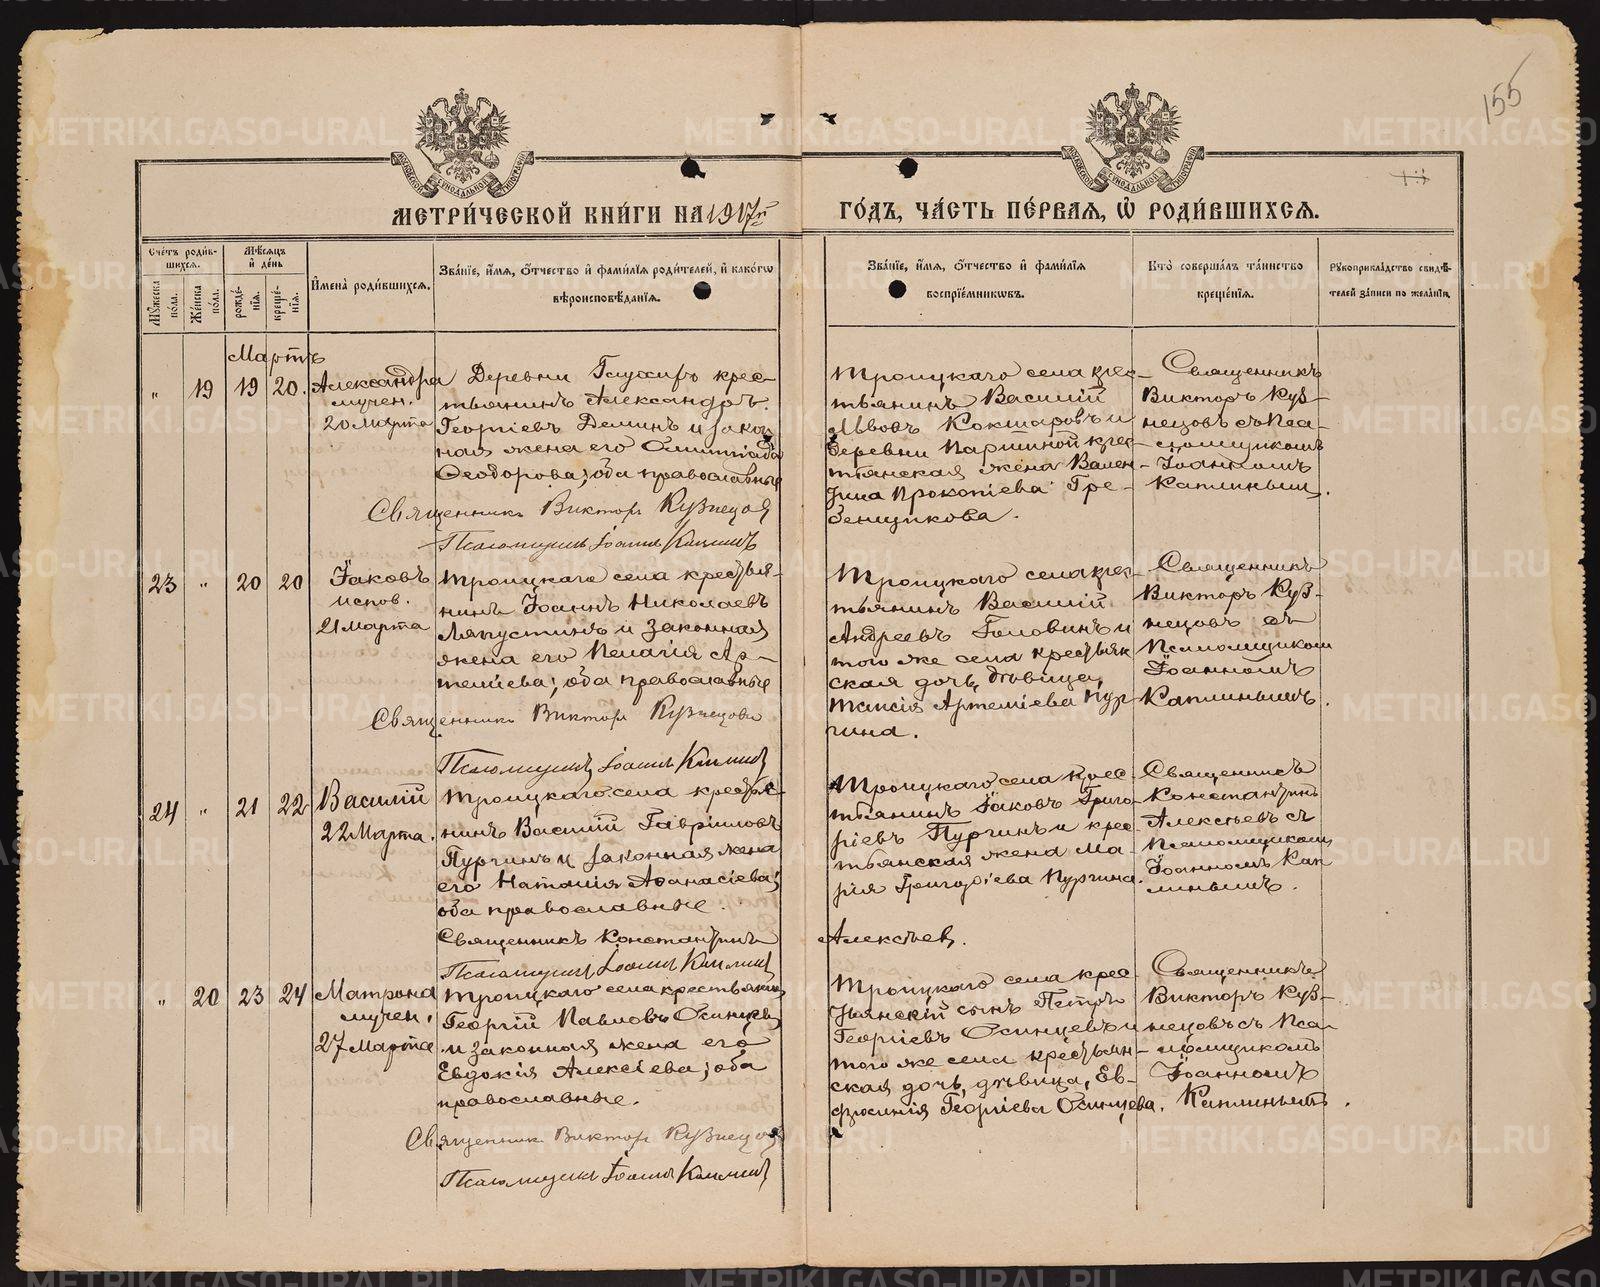 155
МОСКОВСКОЙ СѴНОДАЛЬНОЙ ТИПОГРАФІИ
МОСКОВСКОЙ СѴНОДАЛЬНОЙ ТИПОГРАФІИ
МЕТРИ́ЧЕСКОЙ КНИ́ГИ НА 1917й ГО́ДЪ, ЧА́СТЬ ПЕ́РВАЯ, Ѡ҆ РОДИ́ВШИХСЯ.
Сче́тъ роди́в-
шихся.
Мꙋ́жеска по́ла.
Же́нска по́ла.
Мѣ́сяцъ и҆ де́нь
рожде́-
нїя.
креще́-
нїя.
И҆мена̀ роди́вшихся.
Зва́нїе, и҆́мя, ѻ҆́тчество и҆ фами́лїя роди́телей, и҆ како́гѡ
вѣроисповѣ́данїя.
Зва́нїе, и҆́мя, ѻ҆́тчество и҆ фами́лїя
воспрїе́мникѡвъ.
Кто̀ соверша́лъ та́инство
креще́нїя.
Рꙋкоприкла́дство свидѣ́-
телей за́писи по жела́нїю.
Мартъ
" 19 19 20.
Александра
мучен.
20 Марта
Деревни Глухихъ крес-
тьянинъ Александръ
Георгіевъ Деминъ и закон
ная жена его Олимпіада
Ѳеодорова; оба православные
Священникъ Викторъ Кузнецовъ
Псаломщикъ Іоаннъ Каплинъ
Троицкаго села крес-
тьянинъ Василій
Львовъ Кокшаровъ и
деревни Паршиной крес-
тьянская жена Вален-
тина Прокопіева Гре-
бенщикова.
Священникъ
Викторъ Куз-
нецовъ съ Пса-
ломщикомъ
Іоанномъ
Каплинымъ.
23 " 20 20
Іаковъ
испов.
21 Марта
Троицкаго села крестья-
нинъ Іоаннъ Николаевъ
Ляпустинъ и законная
жена его Пелагія Ар-
теміева; оба православные
Священникъ Викторъ Кузнецовъ
Псаломщикъ Іоаннъ Каплинъ
Троицкаго села крес-
тьянинъ Василій
Андреевъ Головинъ и
того же села крестьян
ская дочь, дѣвица,
Таисія Артеміева Пур
гина.
Священникъ
Викторъ Куз-
нецовъ съ
Псаломщикомъ
Іоанномъ
Каплинымъ.
24 " 21 22
Василій
22 Марта.
Троицкаго села крестья-
нинъ Василій Гавріиловъ
Пургинъ и законная жена
его Наталія Аѳанасіева;
оба православные.
Священникъ Константинъ Алексѣевъ.
Псаломщикъ Іоаннъ Каплинъ
Троицкаго села крес-
тьянинъ Іаковъ Григо-
ріевъ Пургинъ и крес-
тьянская жена Ма-
рія Григоріева Пургина.
Священникъ
Константинъ
Алексѣевъ съ
Псаломщикомъ
Іоанномъ Кап
линымъ.
" 20 23 24
Матрона
мучен.
27 Марта
Троицкаго села крестьянинъ
Георгій Павловъ Осинцевъ
и законная жена его
Евдокія Алексіева; оба
православные.
Священникъ Викторъ Кузнецовъ
Псаломщикъ Іоаннъ Каплинъ
Троицкаго села крес-
тьянскій сынъ Петръ
Георгіевъ Осинцевъ и
того же села крестьян-
ская дочь, дѣвица, Ев-
фросинія Георгіева Осинцева.
Священникъ
Викторъ Куз-
нецовъ съ Пса-
ломщикомъ
Іоанномъ
Каплинымъ.